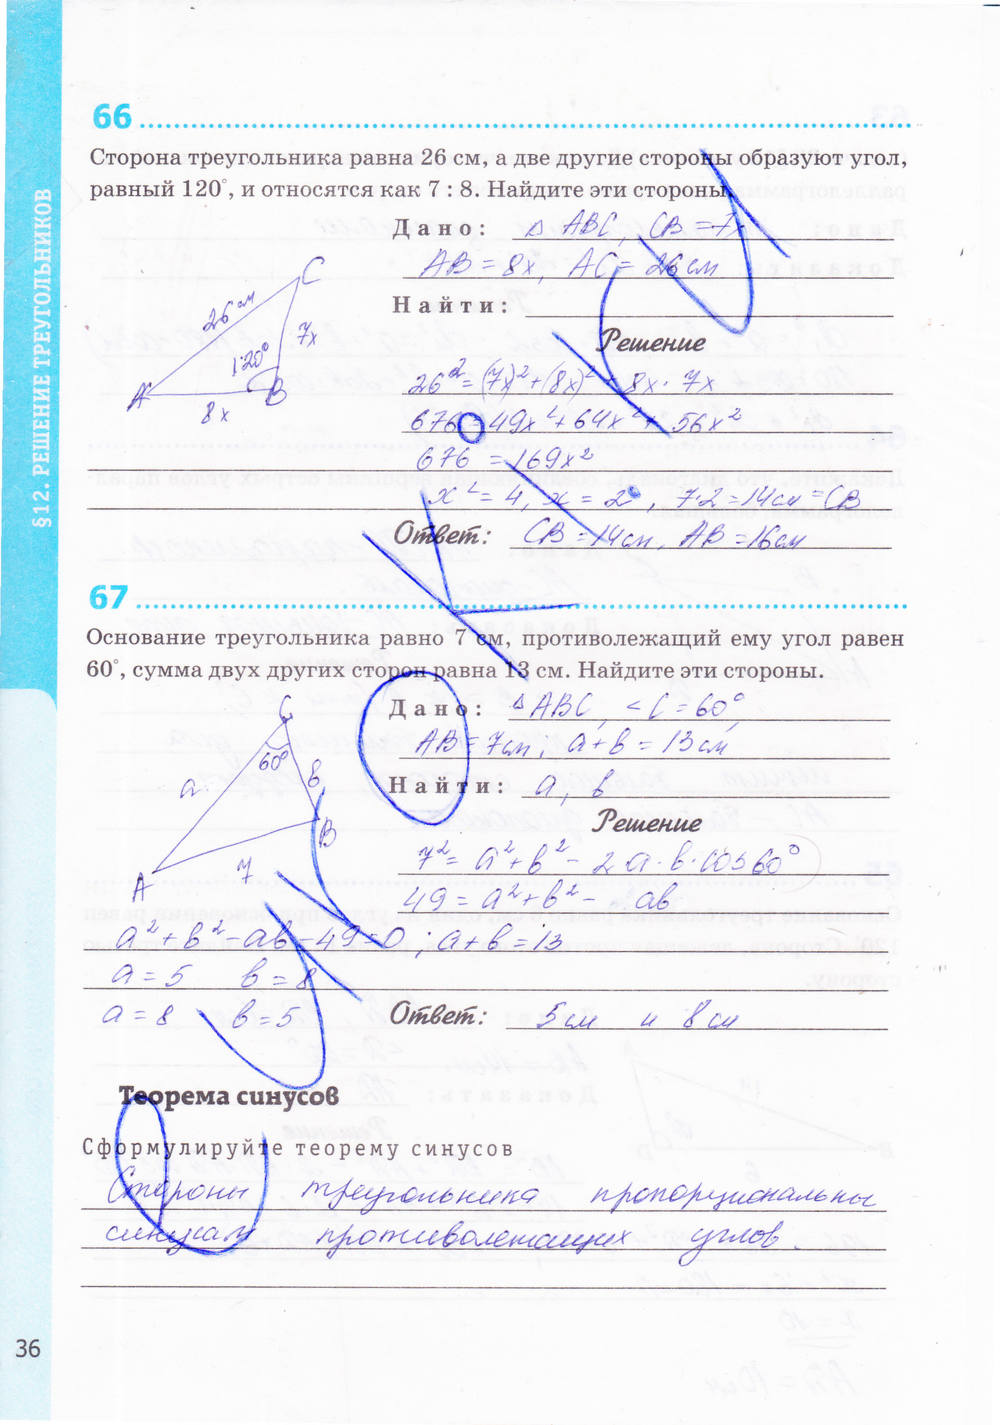 §12. РЕШЕНИЕ ТРЕУГОЛЬНИКОВ
66
Сторона треугольника равна 26 см, а две другие стороны образуют угол,
равный 120°, и относятся как 7 : 8. Найдите эти стороны.
Дано: △ ABC, CB = 7x
AB = 8x, AC = 26 см
Найти:
Решение
C
26 см
7x
120°
A
B
8x
26² = (7x)² + (8x)² + 8x · 7x
676 = 49x² + 64x² + 56x²
676 = 169x²
x² = 4, x = 2, 7·2 = 14 см = CB
Ответ: CB = 14 см, AB = 16 см
67
Основание треугольника равно 7 см, противолежащий ему угол равен
60°, сумма двух других сторон равна 13 см. Найдите эти стороны.
Дано: △ ABC, < C = 60°,
AB = 7 см, a + b = 13 см
Найти: a, b
Решение
C
60°
a
b
B
A
7
7² = a² + b² - 2 a · b · cos 60°
49 = a² + b² - ab
a² + b² - ab - 49 = 0 ; a + b = 13
a = 5 b = 8
a = 8 b = 5
Ответ: 5 см и 8 см
Теорема синусов
Сформулируйте теорему синусов
Стороны треугольника пропорциональны
синусам противолежащих углов.
36